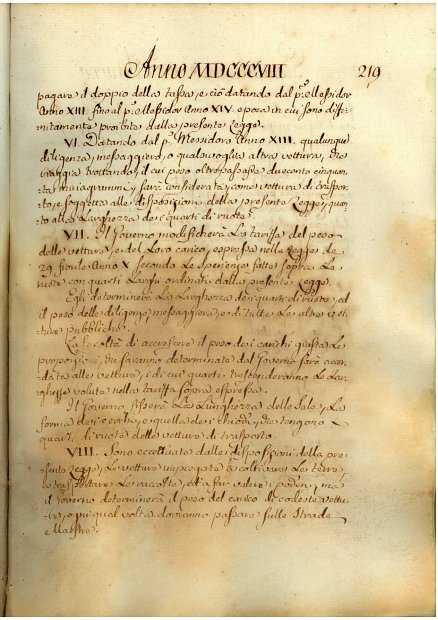 Anno MDCCCVIII 219
pagare il doppio della tassa, e ciò datando dal p.º Messidor
Anno XIII. fino al p.º Messidor Anno XIV. epoca in cui sono diffi-
nitamente proibite dalla presente Legge.
VI. Datando dal p.º Messidoro Anno XIII. qualunque
diligenza, messaggiero, o qualsivoglia altra vettura, che
viaggia trottando, il cui peso oltrepassasse duecento cinquan-
ta miriagrammi, sarà considerata come vettura di traspor-
to, e soggetta alle disposizioni della presente Legge, quan-
to alla Larghezza dei quarti di ruote.
VII. Il Governo modificherà La tariffa del peso
delle vetture, e del Loro carico, espressa nella Legge de
29. fiorile Anno X. secondo Le sperienze fatte sopra Le
ruote con quarti Larghi ordinati dalla presente Legge.
Egli determinerà La Larghezza dei quarti di ruote, ed
il peso delle diligenze, messaggierie, e di tutte Le altre vet-
ture pubbliche.
La facoltà di accrescere il peso dei carichi giusta Le
proporzioni, che saranno determinate dal Governo sarà accor-
data alle vetture, i di cui quarti trascenderanno Le Lar-
ghezze volute nella tariffa sopra espressa.
Il Governo fisserà La Lunghezza delle Sale, La
forma dei cerchi, e quella dei chiodi, che tengono i
quarti di ruote delle vetture di trasporto.
VIII. Sono eccettuate dalle disposizioni della pre-
sente Legge, Le vetture impiegate a coltivare Le terre,
a trasportare Le raccolte, ed a far valere i poderi; ma
il Governo determinerà il peso del carico di codeste vettu-
re, ogni qual volta dovranno passare sulle Strade
Maestre.